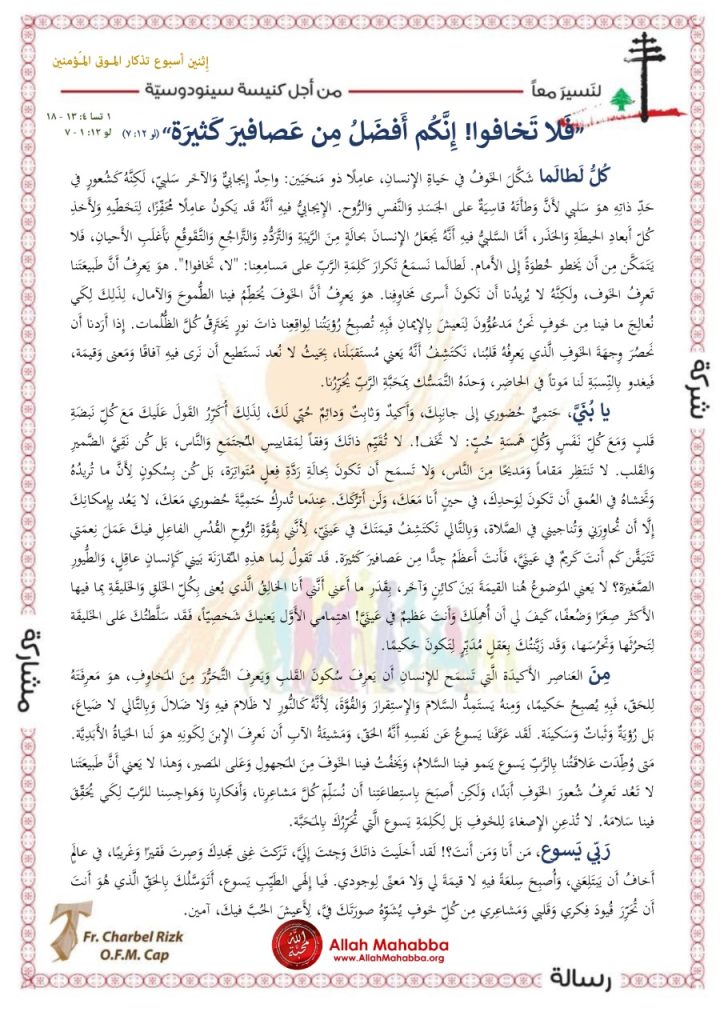 إثنين أسبوع تذكار الموتى المؤمنين
لنَسيرَ معاً
من أجل كنيسة سينودوسيّة
١ تسا ٤: ١٣ - ١٨
لو ١٢: ١ - ٧
«فَلا تَخافوا! إِنَّكُم أَفضَلُ مِن عَصافيرَ كَثيرَة» (لو ١٢: ٧)
كُلُّ لَطالَما شَكَّلَ الخَوفُ في حَياةِ الإنسانِ، عامِلًا ذو مَنحَيَين: واحِدٌ إيجابيٌّ والآخر سَلبيّ، لَكِنَّهُ كَشُعورٍ في
حَدِّ ذاتِهِ هو سَلبي لأنَّ وَطأَتَهُ قاسِيَةٌ على الجَسَدِ والنَّفسِ والرُّوح. الإيجابيُّ فيه أنَّهُ قد يَكونُ عامِلًا مُحَفِّزًا، لِتَخَطّيهِ ولأخذِ
كُلّ أبعادِ الحيطَةِ والحَذَر، أمَّا السَّلبيُّ فيه أنَّهُ يَجعَلُ الإنسانَ بحالَةٍ منَ الرَّيبَةِ والتَّرَدُّدِ والتَّراجُعِ والتَّقوقُعِ بأغلَبِ الأحيانِ، فَلا
يَتَمَكَّن مِن أن يَخطو خُطوَةً إلى الأمام. لَطالَما نَسمَعُ تَكرارَ كَلِمَةِ الرَّبِّ على مَسامِعِنا: "لا، تَخافوا!". هو يَعرِفُ أنَّ طَبيعَتَنا
تَعرِفُ الخَوف، ولَكِنَّهُ لا يُريدُنا أن نَكونَ أسرى مَخاوِفِنا. هو يَعرِفُ أنَّ الخَوفَ يُحَطِّمُ فينا الطُّموحَ والآمال، لِذلِكَ لِكَي
نُعالِجَ ما فينا مِن خَوفٍ نَحنُ مَدعُوُّونَ لِنَعيشَ بِالإيمانِ فَبِهِ تُصبِحُ رُؤيَتُنا لِواقِعِنا ذاتَ نورٍ يَخترِقُ كُلَّ الظُّلُمات. إذا أرَدنا أن
نَحصُرَ وِجهَةَ الخَوفِ الَّذي يَعرِفُهُ قَلبُنا، نَكتَشِفُ أنَّهُ يَعني مُستَقبَلَنا، بِحَيثُ لا نُعد نَستَطيع أن نَرى فيهِ آفاقًا ومَعنى وقيمَة،
فيَغدو بِالنِّسبَةِ لَنا مَوتاً في الحاضِر، وَحدَهُ التَّمَسُّك بِمَحَبَّةِ الرَّبِّ يُحَرِّرُنا.
يا بُنَيَّ، حَتميٌّ حُضوري إلى جانِبِكَ، وأكيدٌ وثابِتٌ ودائِمٌ حُبّي لَكَ، لِذلِكَ أُكَرِّرُ القَولَ عَلَيكَ مَعَ كُلِّ نَبضَةِ
قَلبٍ ومَعَ كُلِّ نَفَسٍ وكُلِّ هَمسَةِ حُبٍّ: لا تَخَف!. لا تُقَيِّم ذاتَكَ وَفقاً لِمقاييسِ المُجتَمَعِ والنَّاس، بَل كُن نَقِيَّ الضَّميرِ
والقَلب. لا تَنتَظِر مَقاماً ومَديحًا مِنَ النَّاس، ولا تَسمَح أن تَكونَ بِحالَةِ رَدَّةِ فِعلٍ مُتَواتِرَة، بَل كُن بِسُكونٍ لأنَّ ما تُريدُهُ
وتَخشاهُ في العُمقِ أن تَكونَ لِوَحدِكَ، في حينٍ أنا مَعَكَ، ولَن أترُكَكَ. عِندَما تُدرِكُ حَتميَّةَ حُضوري مَعَكَ، لا يَعُد بِإمكانِكَ
إلَّا أن تُحاوِرَني وتُناجيني في الصَّلاة، وبِالتَّالي تَكتَشِفُ قيمَتَكَ في عَينَيّ، لأنَّني بِقُوَّةِ الرُّوحِ القُدُسِ الفاعِلِ فيكَ عَمَلَ نِعمَتي
تَتَيَقَّن كَم أنتَ كَريمٌ في عَينَيَّ، فَأنتَ أعظَمُ جدًّا مِن عَصافيرَ كَثيرَة. قَد تَقولُ لِما هذِهِ المُقارَنَة بَيني كَإنسانٍ عاقِلٍ، والطُّيورِ
الصَّغيرَة؟ لا يَعني المَوضوعُ هُنا القيمَةَ بَينَ كائِنٍ وآخَر، بِقَدَرِ ما أعني أنَّني أنا الخالِقُ الَّذي يُعنى بِكُلِّ الخَلقِ والخَليقَةِ بِما فيها
الأكثَر صِغَرًا وضُعفًا، كَيفَ لي أن أُهمِلَكَ وأنتَ عَظيمٌ في عَينَيَّ! اهتِمامي الأوَّل يَعنيكَ شَخصِيّاً، فَقَد سَلَّطتُكَ عَلى الخَليقَة
لِتَحرُثَها وتَحرُسَها، وقَد زَيَّنتُكَ بِعَقلٍ مُدَبِّرٍ لِتَكونَ حَكيمًا.
مِنَ العَناصِرِ الأكيدَة الَّتي تَسمَح للإنسانِ أن يَعرِفَ سُكونَ القَلبِ ويَعرِفَ التَّحَرُّرَ مِنَ المَخاوِفِ، هو مَعرِفَتُهُ
لِلحَقّ، فَبِهِ يُصبِحُ حَكيمًا، ومِنهُ يَستَمِدُّ السَّلامَ والإستِقرارَ والقُوَّةَ، لأنَّهُ كالنُّورِ لا ظَلامَ فيهِ ولا ضَلالَ وبِالتَّالي لا ضَياعَ،
بَل رُؤيَةٌ وثَباتٌ وسَكينَة. لَقَد عَرَّفَنا يَسوعُ عَن نَفسِهِ أنَّهُ الحَقّ، ومَشيئَةُ الآبِ أن نَعرِفَ الإبنَ لِكَونِهِ هو لَنا الحَياةُ الأبَدِيَّة.
مَتى وُطِّدَت عَلاقَتُنا بِالرَّبِّ يَسوع يَنمو فينا السَّلامُ، ويَخفُتُ فينا الخَوفَ مِنَ المَجهولِ وعَلى المَصير، وهذا لا يَعني أنَّ طَبيعَتَنا
لا تَعُد تَعرِفُ شُعورَ الخَوفِ أبَدًا، ولَكِن أصبَحَ بِاستِطاعَتِنا أن نُسَلِّمَ كُلَّ مَشاعِرِنا، وأفكارِنا وهَواجِسِنا للرَّبِّ لِكَي يُحَقِّقَ
فينا سَلامَهُ. لا تُذعِنِ الإصغاءَ للخوفِ بَل لِكَلِمَةِ يَسوع الَّتي تُحَرِّرُكَ بِالمَحَبَّة.
رَبّي يَسوع، مَن أنا ومَن أنتَ؟! لَقَد أخلَيتَ ذاتَكَ وجِئتَ إلَيَّ، تَرَكتَ غِنى مَجدِكَ وصِرتَ فَقيرًا وغَريبًا، في عالَمٍ
أخافُ أن يَبتَلِعَني، وأُصبِحَ سِلعَةً فيهِ لا قيمَةَ لي ولا مَعنًى لِوجودي. فَيا إلَهي الطَّيِّبِ يَسوع، أتَوَسَّلُكَ بِالحَقِّ الَّذي هُوَ أنتَ
أن تُحَرِّرَ قُيودَ فِكري وقَلبي ومَشاعِري مِن كُلِّ خَوفٍ يُشَوِّهُ صورَتَكَ فيَّ، لِأعيشَ الحُبَّ فيكَ، آمين.
شركة
مشاركة
رسالة
Fr. Charbel Rizk
O.F.M. Cap
الله محبة
Allah Mahabba
www.AllahMahabba.org